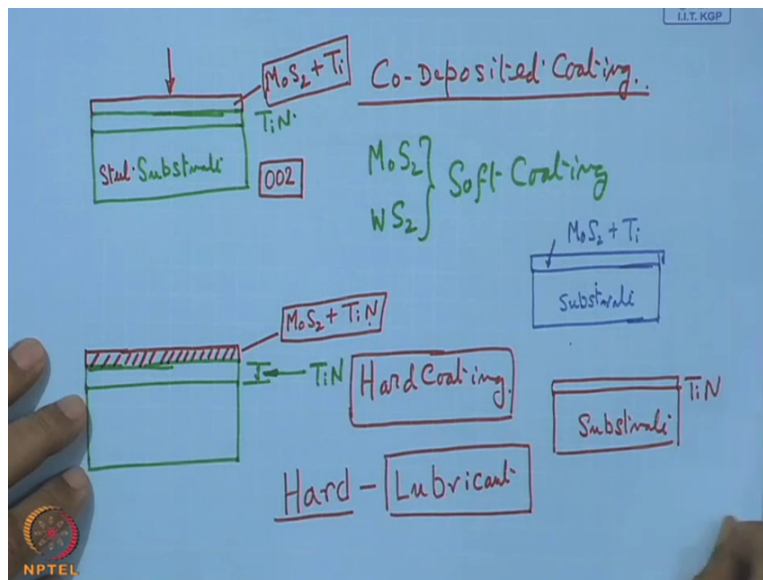 I.I.T. KGP
MoS2 + Ti
Co-Deposited Coating.
TiN
Steel Substrate
002
MoS2
WS2
Soft Coating
MoS2 + Ti
Substrate
MoS2 + TiN
TiN
Hard Coating.
TiN
Substrate
Hard - Lubricant
NPTEL